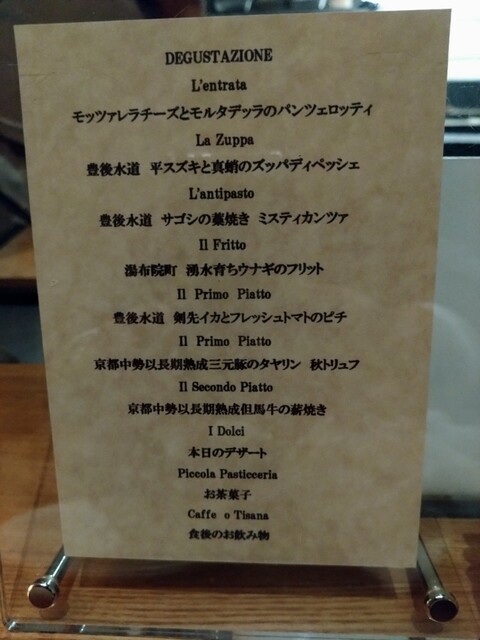 DEGUSTAZIONE
L'entrata
モッツァレラチーズとモルタデッラのパンツェロッティ
La Zuppa
豊後水道　平スズキと真蛸のズッパディペッシェ
L'antipasto
豊後水道　サゴシの藁焼き　ミスティカンツァ
Il Fritto
湯布院町　湧水育ちウナギのフリット
Il Primo Piatto
豊後水道　剣先イカとフレッシュトマトのピチ
Il Primo Piatto
京都中勢以長期熟成三元豚のタヤリン　秋トリュフ
Il Secondo Piatto
京都中勢以長期熟成但馬牛の薪焼き
I Dolci
本日のデザート
Piccola Pasticceria
お茶菓子
Caffe o Tisana
食後のお飲み物